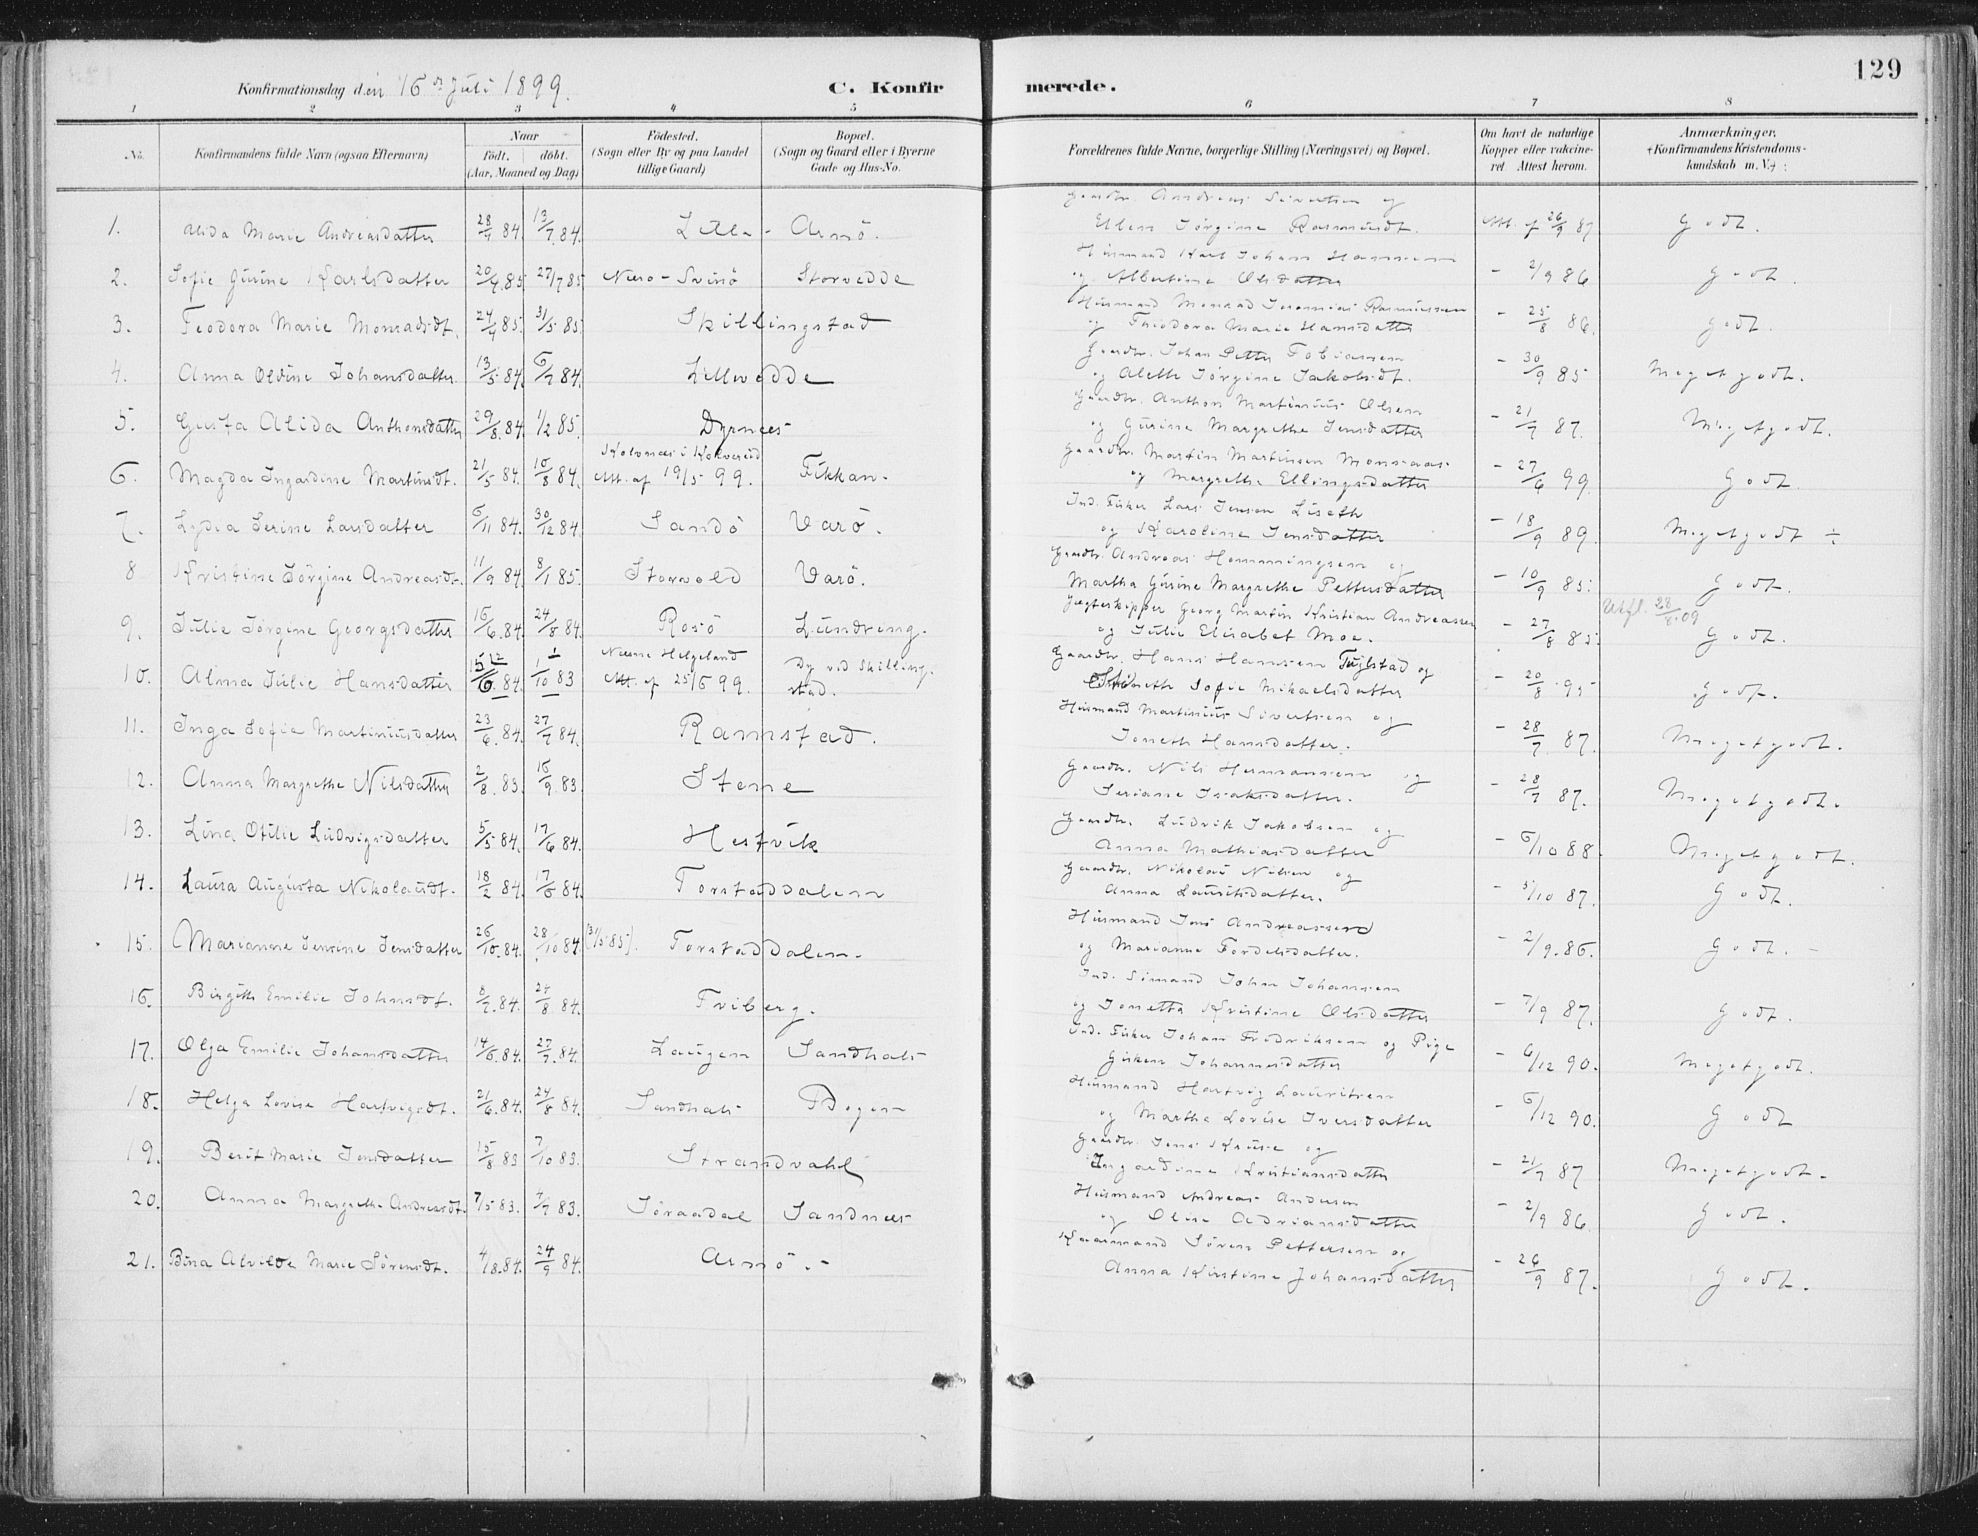 129
Konfirmationsdag den 16de Juli 1899.
C. Konfirmerede.
1 2 3 4 5 6 7 8
No.
Konfirmandens fulde Navn (ogsaa Efternavn)
Naar
født. døbt.
(Aar, Maaned og Dag)
Fødested.
(Sogn eller By og paa Landet
tillige Gaard)
Bopæl.
(Sogn og Gaard eller i Byerne
Gade og Hus-No.
Forældrenes fulde Navne, borgerlige Stilling (Næringsvei) og Bopæl.
Om havt de naturlige
Kopper eller vakcine-
ret. Attest herom.
Anmærkninger.
(Konfirmandens Kristendoms-
kundskab m. V.)
Gaardbr. Andreas Sivertsen og
1. Alida Marie Andreasdatter 28/4 84. 13/7 84. Lille-Arnö. Ellen Jørgine Rasmusdt. Att. af 26/9 87 Godt.
Husmand Karl Johan Hansen
2. Sofie Gurine Karlsdatter 20/4 85 27/7 85 Nærö-Svinö Storvedde og Albertine Olsdatter - 2/9 86 Godt.
Husmand Monrad Jeremias Rasmussen
3. Feodora Marie Monradsdt. 24/4 85. 31/5 85 Skillingstad og Theodora Marie Hansdatter - 25/8 86. Godt.
Gaardbr. Johan Petter Tobiassen
4. Anna Oldine Johansdatter. 13/5 84. 6/7 84. Lillevedde og Aleth Jørgine Jakobsdt. - 30/9 85 Megetgodt.
Gaardbr. Anthon Martinius Olsen
5. Gusta Alida Anthonsdatter 29/8 84. 1/2 85. Dyrnæs og Gurine Margrethe Jensdatter - 21/7 87. Megetgodt.
Kolvnæs i Kolvereid Gaardbr. Martin Martinsen Monsaas
6. Magda Ingardine Martinsdt. 21/5 84. 10/8 84. Att. af 19/5 99. Fikkan. og Margrethe Ellingsdatter - 27/6 99. Godt.
Ind. Fisker Lars Jensen Liseth
7. Lydia Serine Larsdatter 6/11 84. 30/12 84. Sandö Varö. og Karoline Jensdatter - 18/9 89. Megetgodt ÷
Gaardbr. Andreas Hemmingsen og
8 Kristine Jörgine Andreasdt. 11/9 84. 8/1 85. Storvold Varö. Martha Gurine Margrethe Pettersdatter - 10/9 85. Godt.
Jægteskipper Georg Martin Kristian Andreassen Utfl. 28/8.09
9. Julie Jörgine Georgsdatter 16/6 84. 24/8 84. Rosö Lundring. og Julie Elisabet Moe. - 27/8 85 Godt.
Næsne Helgeland Gaardbr. Hans Hansen Fuglstad og
10. Alma Julie Hansdatter 84. 1/10 83 Att. af 25/6 99. Dy ved Skilling-
stad. Sofie Mikaelsdatter - 20/8 95 Godt.
Husmand Martinius Sivertsen og
11. Inga Sofie Martiniusdatter 23/6 84. 27/7 84. Ramstad. Joneth Hansdatter. - 28/7 87. Megetgodt.
Gaardbr. Nils Hermansen og
12. Anna Margrethe Nilsdatter 2/8 83. 16/9 83. Stene Seriane Isaksdatter. - 28/7 87. Megetgodt.
Gaardbr. Ludvik Jakobsen og
13. Lina Otilie Ludvigsdatter 5/5 84. 17/6 84. Hestvik Anna Mathiasdatter - 6/10 88. Megetgodt.
Gaardbr. Nikolai Nilsen og
14. Laura Augusta Nikolausdt. 18/2 84. 17/6 84. Torstaddalen Anna Lauritsdatter. - 5/10 87. Godt.
Husmand Jens Andreassen
15. Marianne Jensine Jensdatter 26/10.84. 28/10 84. (31/5 85). Torstaddalen. og Marianne Tordelsdatter. - 2/9.86. Godt.
Ind. Sömand Johan Johansen
16. Birgitte Emilie Johansdt. 8/7.84. 24/8 84. Friberg. og Jonetta Kristine Olsdatter - 7/9 87. Godt.
Ind. Fisker Johan Fredriksen og Pige
17. Olga Emilie Johansdatter 14/6.84. 27/7.84. Laugen Sandhals Gusken Johannesdatter - 6/12 90. Megetgodt.
Husmand Hartvig Lauritsen
18. Helga Lovise Hartvigsdt. 21/6.84. 24/8 84. Sandhals Bogen og Martha Lovise Iversdatter - 6/12 90. Godt
Gaardbr. Jens Kruse og
19. Berit Marie Jensdatter 15/8 83 7/10 83. Strandvahl Ingardine Kristiansdatter - 21/7 87 Megetgodt.
Husmand Andreas Andersen
20. Anna Margrethe Andreasdt. 7/5 83. 7/7 83. Söraadal Sandnæs og Oline Adriansdatter - 2/9 86. Godt.
Kaarmand Sören Pettersen og
21. Bina Alvilde Marie Sörensdt. 4/8.84. 24/9 84. Arnö. Anna Kirstine Johansdatter - 26/9 87. Godt.